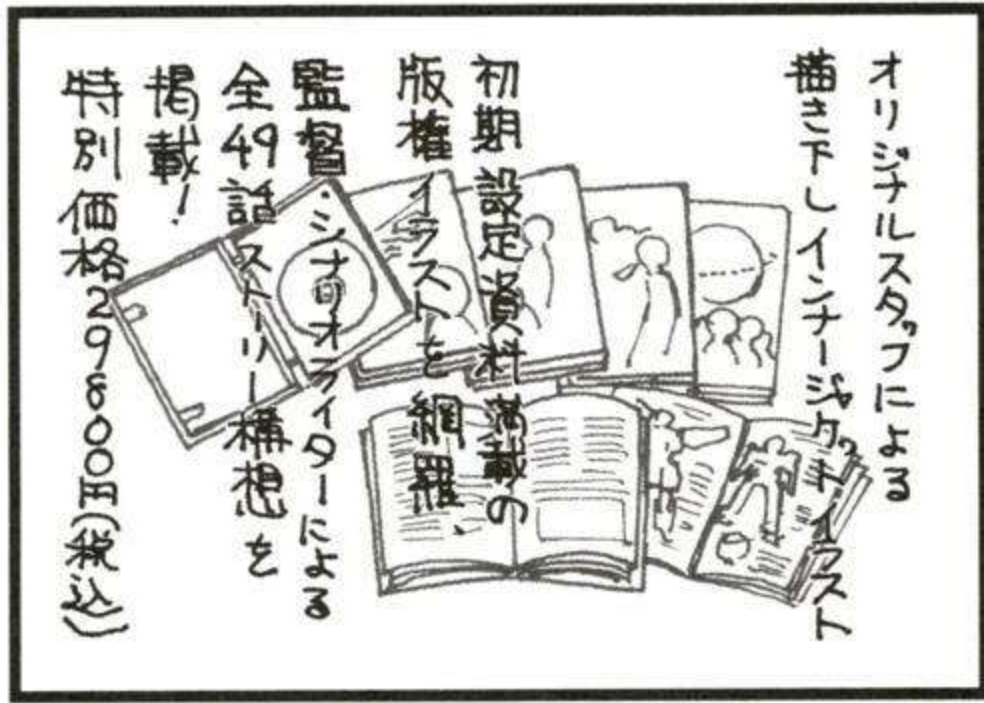 オリジナルスタッフによる
描き下しインナージャケットイラスト
初期設定資料満載の
版権イラストを網羅、
監督・シナリオライターによる
全49話ストーリー構想を
掲載！
特別価格29800円(税込)